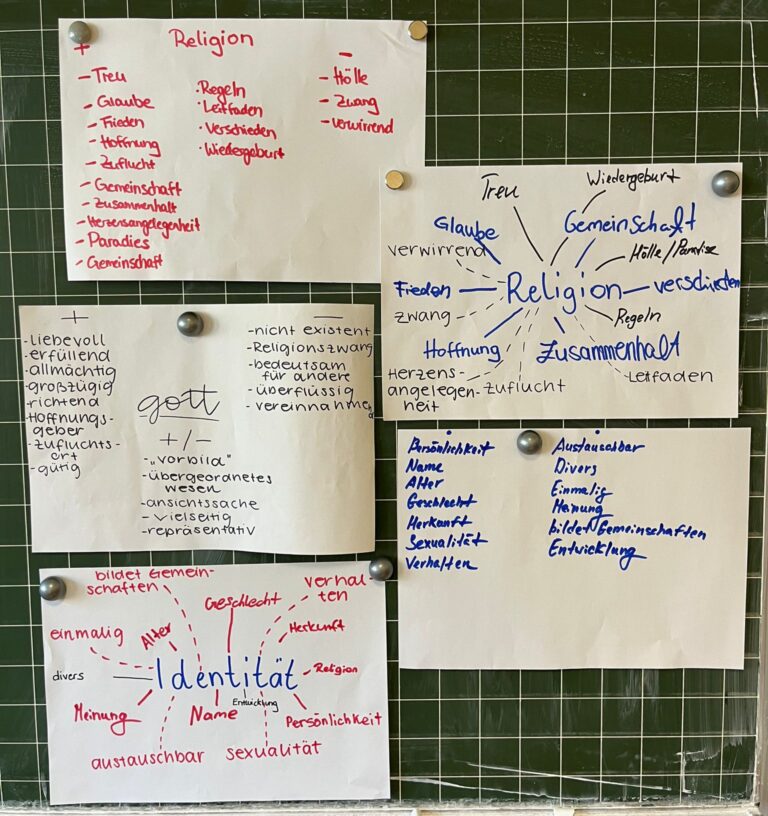 Religion
+
– Treu
– Glaube
– Frieden
– Hoffnung
– Zuflucht
– Gemeinschaft
– Zusammenhalt
– Herzensangelegenheit
– Paradies
– Gemeinschaft
· Regeln
· Leitfaden
· Verschieden
· Wiedergeburt
–
– Hölle
– Zwang
– verwirrend
Treu
Wiedergeburt
Glaube
Gemeinschaft
verwirrend
Hölle/Paradise
Frieden
Religion
verschieden
zwang
Regeln
Hoffnung
Zusammenhalt
Herzens-
angelegen-
heit
zuflucht
Leitfaden
+
-liebevoll
-erfüllend
-allmächtig
-großzügig
-richtend
-Hoffnungs-
geber
-zufluchts-
ort
-gütig
gott
+/-
-„vorbild"
-übergeordnetes
wesen
-ansichtssache
- vielseitig
-repräsentativ
—
-nicht existent
-Religionszwang
-bedeutsam
für andere
-überflüssig
-vereinnahmend
Persönlichkeit
Name
Alter
Geschlecht
Herkunft
Sexualität
Verhalten
Austauschbar
Divers
Einmalig
Meinung
bildet Gemeinschaften
Entwicklung
bildet Gemein-
schaften
verhal-
ten
Geschlecht
einmalig
Alter
Herkunft
divers
Identität
Religion
Entwicklung
Meinung
Name
Persönlichkeit
austauschbar
sexualität